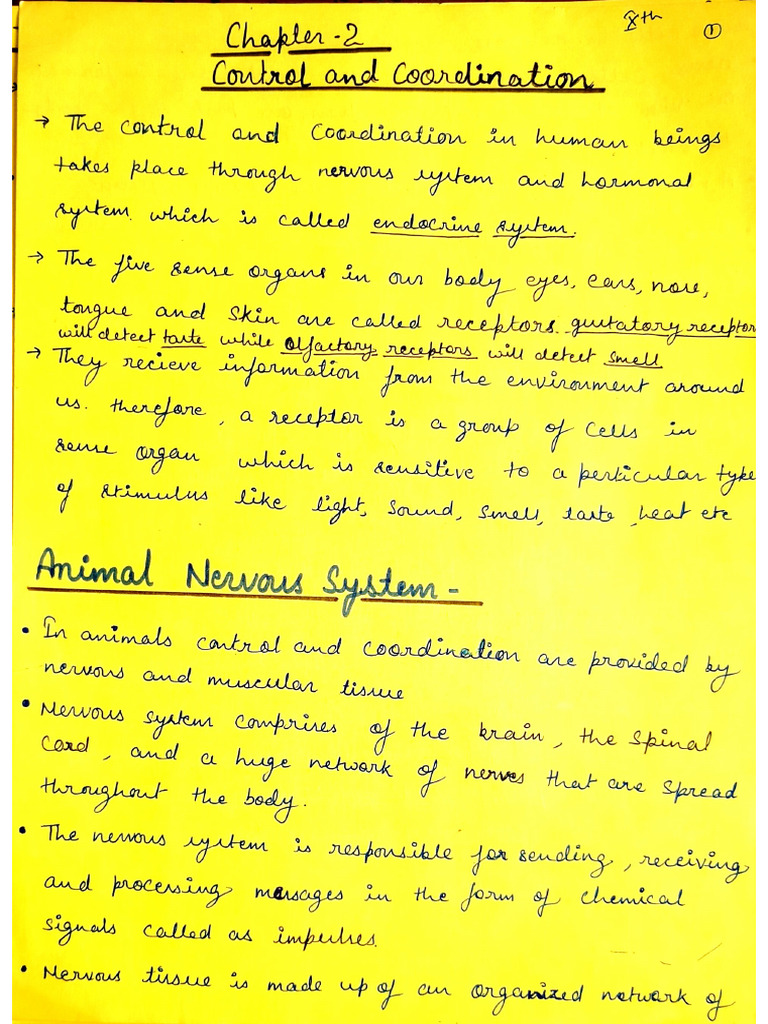 Xth ①
Chapter - 2
Control and Coordination
→ The control and coordination in human beings
takes place through nervous system and hormonal
system which is called endocrine system.
→ The five sense organs in our body eyes, ears, nose,
tongue and skin are called receptors. gustatory receptors
will detect taste while olfactory receptors will detect smell
→ They recieve information from the environment around
us. therefore, a receptor is a group of cells in
sense organ which is sensitive to a perticular type
of stimulus like light, sound, smell, taste, heat etc
Animal Nervous System -
• In animals control and coordination are provided by
nervous and muscular tissue
• Nervous system comprises of the brain, the spinal
cord, and a huge network of nerves that are spread
throughout the body.
• The nervous system is responsible for sending, receiving
and processing messages in the form of chemical
signals called as impulses.
• Nervous tissue is made up of an organized network of